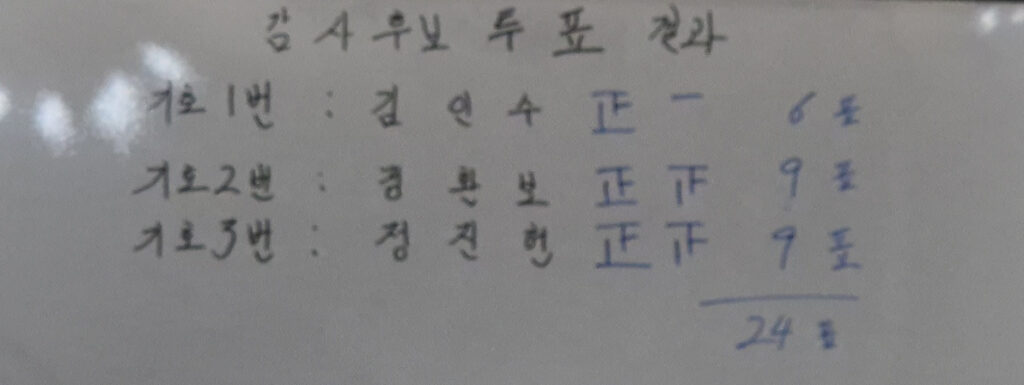 감사후보 투표 결과
기호1번 : 김인수 正一 6표
기호2번 : 경환보 正下 9표
기호3번 : 정진헌 正下 9표
24표